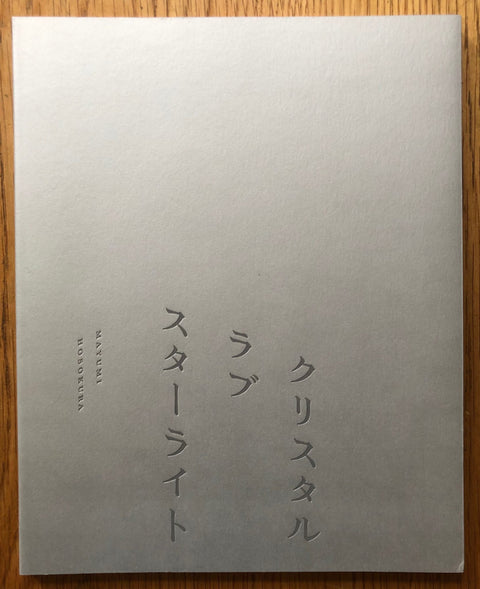 クリスタル
ラブ
スターライト
MAYUMI
HOSOKURA